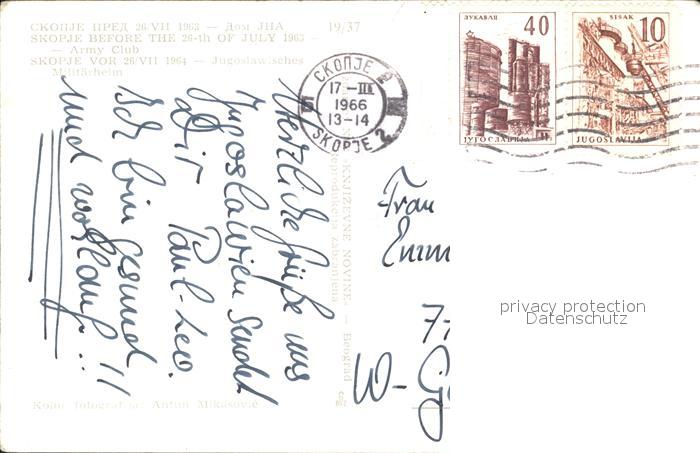 СКОПЈЕ ПРЕД 26/VII 1963 — Дом ЈНА 19/37
SKOPJE BEFORE THE 26-th OF JULY 1963 —
— Army Club
SKOPJE VOR 26/VII 1964 — Jugoslawisches
Militärheim
СКОПЈЕ 2
17-III
1966
13-14
SKOPJE 2
ЛУКАВАЦ
40
ЈУГОСЛАВИЈА
SISAK
10
JUGOSLAVIJA
Herzliche Grüße aus
Jugoslawien sendet
Dir Paul-Leo.
Ich bin gesund
und wohlauf!!
»KNJIŽEVNE NOVINE« — Beograd
Reprodukcija zabranjena
Frau
77
W-
privacy protection
Datenschutz
Kolor fotografija: Antun Mikasović